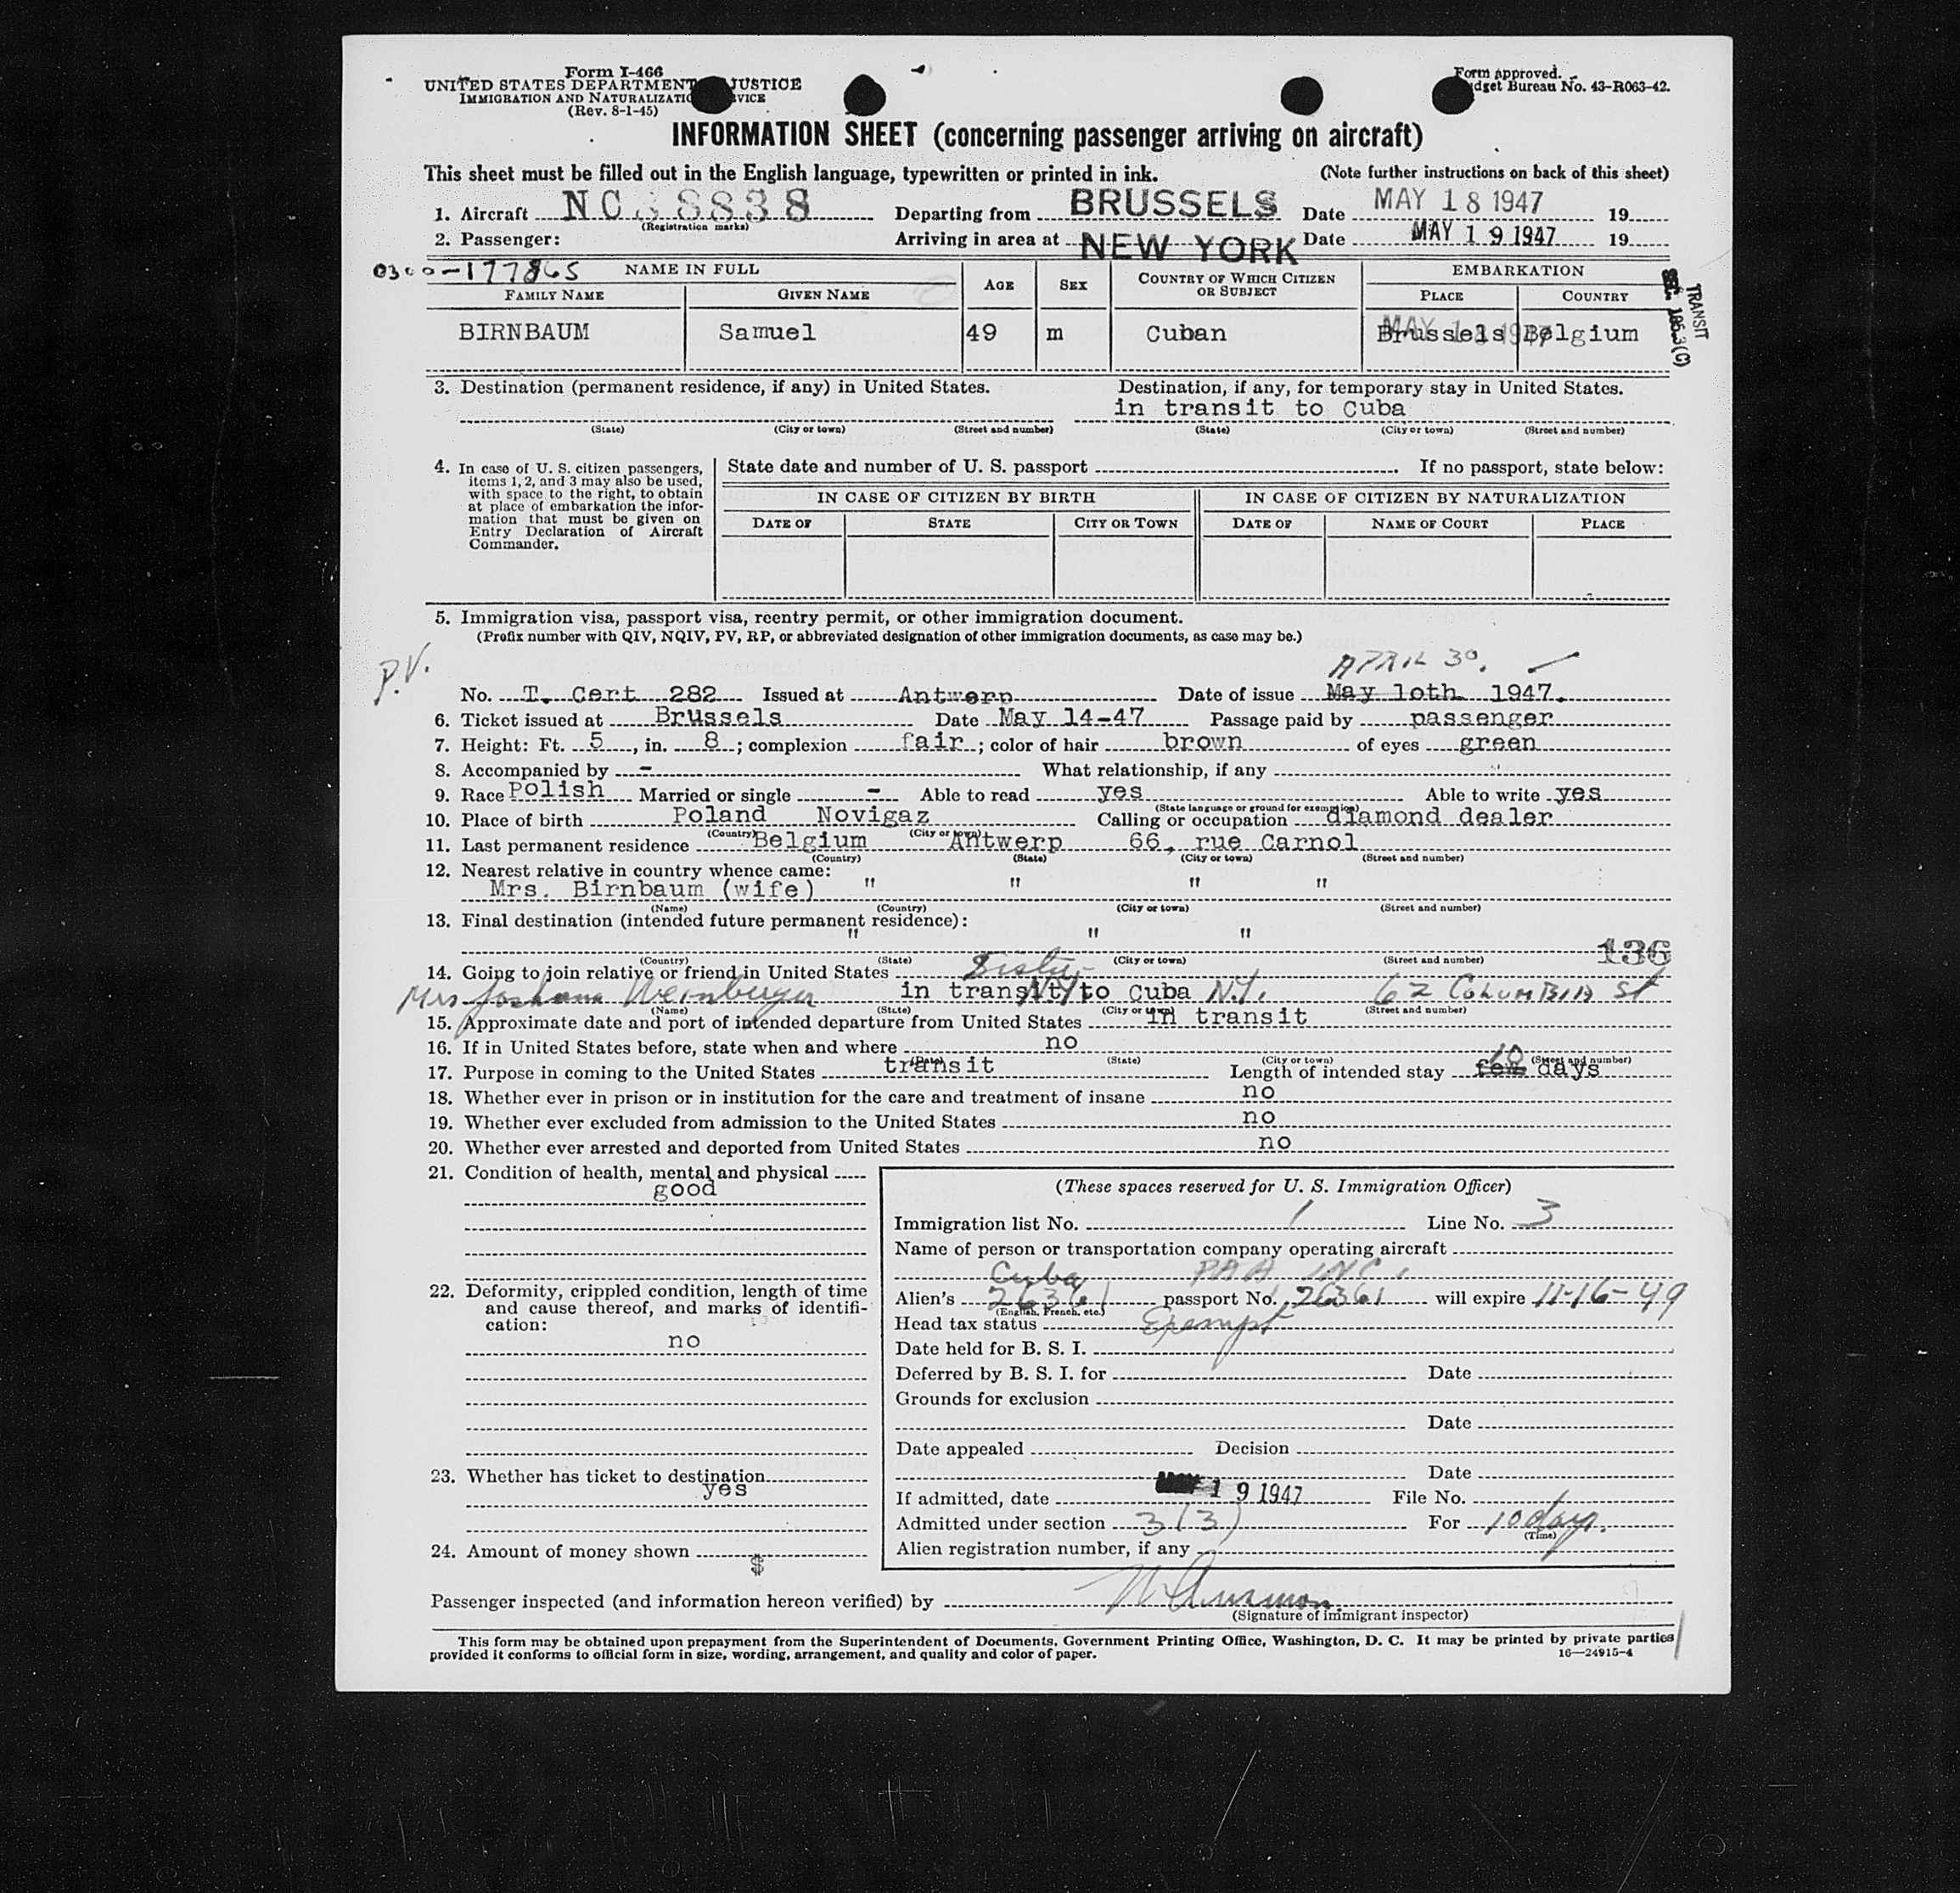 Form I-466
UNITED STATES DEPARTMENT JUSTICE
IMMIGRATION AND NATURALIZATION SERVICE
(Rev. 8-1-45)
Form approved.
Budget Bureau No. 43-R063-42.
INFORMATION SHEET (concerning passenger arriving on aircraft)
This sheet must be filled out in the English language, typewritten or printed in ink. (Note further instructions on back of this sheet)
1. Aircraft NC 88838 Departing from BRUSSELS Date MAY 18 1947 19
(Registration marks)
2. Passenger: Arriving in area at NEW YORK Date MAY 19 1947 19
0300-177865 NAME IN FULL AGE SEX COUNTRY OF WHICH CITIZEN OR SUBJECT EMBARKATION
FAMILY NAME GIVEN NAME PLACE COUNTRY
TRANSIT
SEC. 185.3(C)
BIRNBAUM Samuel 49 m Cuban Brussels Belgium
MAY 18 1947
3. Destination (permanent residence, if any) in United States. Destination, if any, for temporary stay in United States.
in transit to Cuba
(State) (City or town) (Street and number) (State) (City or town) (Street and number)
4. In case of U. S. citizen passengers, items 1, 2, and 3 may also be used, with space to the right, to obtain at place of embarkation the information that must be given on Entry Declaration of Aircraft Commander.
State date and number of U. S. passport If no passport, state below:
IN CASE OF CITIZEN BY BIRTH IN CASE OF CITIZEN BY NATURALIZATION
DATE OF STATE CITY OR TOWN DATE OF NAME OF COURT PLACE
5. Immigration visa, passport visa, reentry permit, or other immigration document.
(Prefix number with QIV, NQIV, PV, RP, or abbreviated designation of other immigration documents, as case may be.)
P.V. APRIL 30.
No. T. Cert 282 Issued at Antwerp Date of issue May 10th 1947.
6. Ticket issued at Brussels Date May 14-47 Passage paid by passenger
7. Height: Ft. 5, in. 8; complexion fair; color of hair brown of eyes green
8. Accompanied by - What relationship, if any
9. Race Polish Married or single - Able to read yes Able to write yes
(State language or ground for exemption)
10. Place of birth Poland Novigaz Calling or occupation diamond dealer
(Country) (City or town)
11. Last permanent residence Belgium Antwerp 66, rue Carnol
(Country) (State) (City or town) (Street and number)
12. Nearest relative in country whence came:
Mrs. Birnbaum (wife) " " " "
(Name) (Country) (City or town) (Street and number)
13. Final destination (intended future permanent residence):
" " "
136
(Country) (State) (City or town) (Street and number)
14. Going to join relative or friend in United States Sister
Mrs Weinberger in transit to Cuba N.Y. N.Y. 62 COLUMBIA St
(Name) (State) (City or town) (Street and number)
15. Approximate date and port of intended departure from United States in transit
16. If in United States before, state when and where no
(Date) (State) (City or town) (Street and number)
17. Purpose in coming to the United States transit Length of intended stay few 10 days
18. Whether ever in prison or in institution for the care and treatment of insane no
19. Whether ever excluded from admission to the United States no
20. Whether ever arrested and deported from United States no
21. Condition of health, mental and physical
good
22. Deformity, crippled condition, length of time and cause thereof, and marks of identification:
no
23. Whether has ticket to destination
yes
24. Amount of money shown
$
(These spaces reserved for U. S. Immigration Officer)
Immigration list No. 1 Line No. 3
Name of person or transportation company operating aircraft
Cuba PAA INC.
Alien's 26361 passport No. 26361 will expire 11-16-49
(English, French, etc.)
Head tax status Exempt
Date held for B. S. I.
Deferred by B. S. I. for Date
Grounds for exclusion
Date
Date appealed Decision
Date
If admitted, date MAY 19 1947 File No.
Admitted under section 3(3) For 10 days.
(Time)
Alien registration number, if any
Passenger inspected (and information hereon verified) by
(Signature of immigrant inspector)
This form may be obtained upon prepayment from the Superintendent of Documents, Government Printing Office, Washington, D. C. It may be printed by private parties
provided it conforms to official form in size, wording, arrangement, and quality and color of paper. 16—24915-4